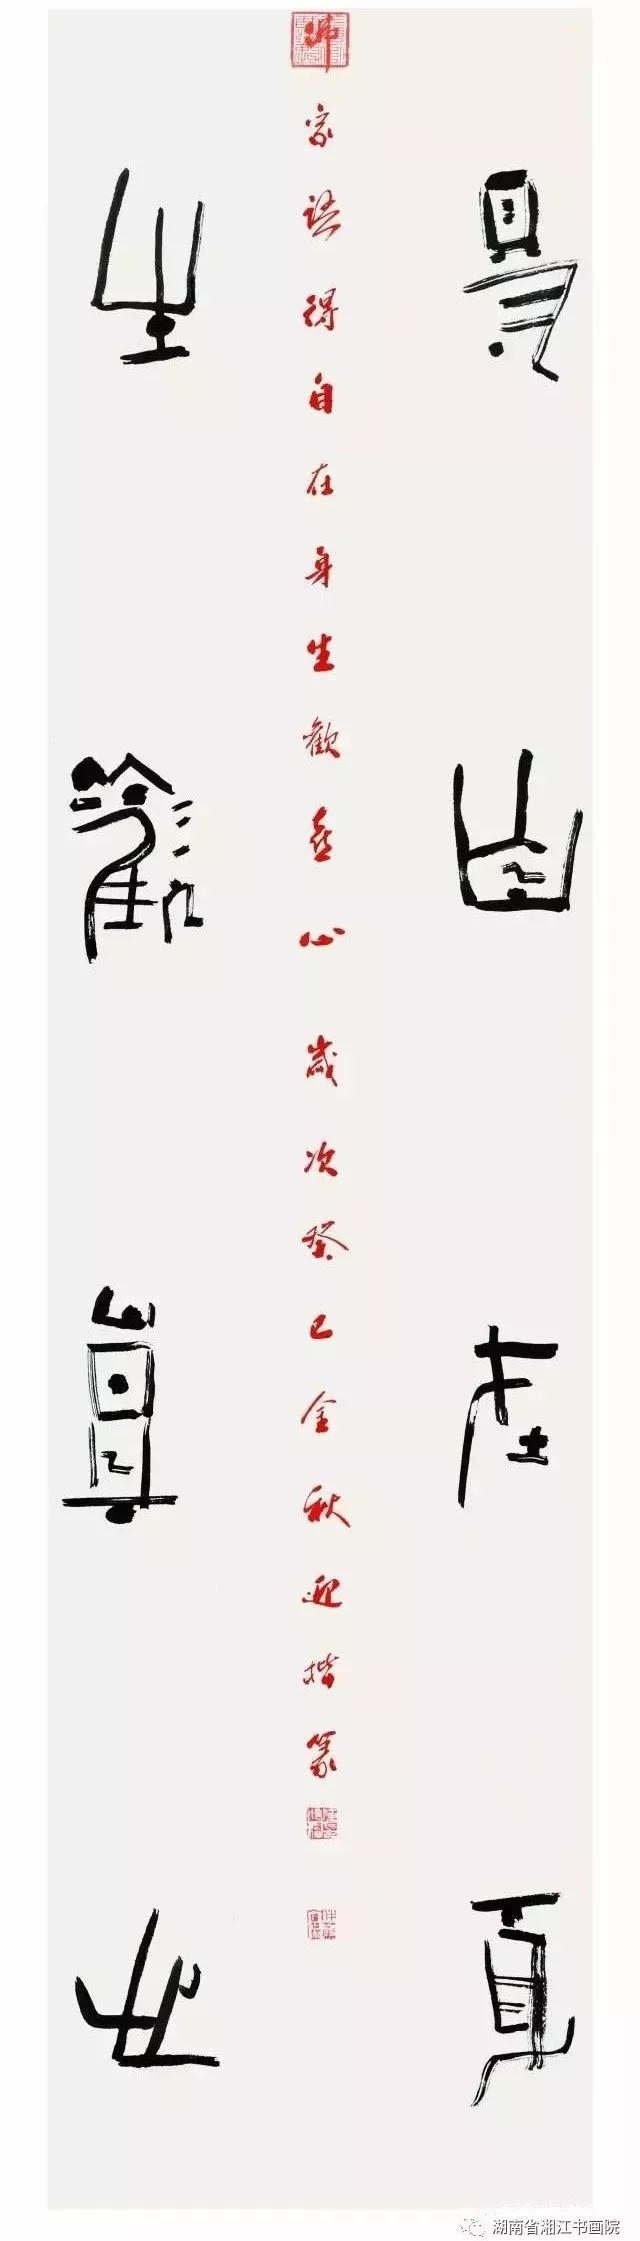 得自在身
生歡喜心
佛家語得自在身生歡喜心歲次癸巳金秋迎揩篆
湖南省湘江书画院